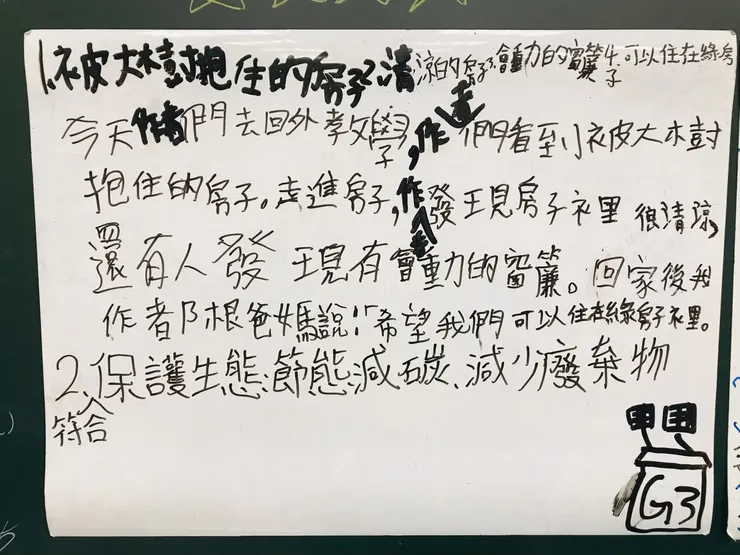 1.被皮大樹抱住的房子2.清涼的房子3.會動力的窗簾4.可以住在綠房子
今天作者們去回外教學,作者們看到小被皮大木樹
抱住的房子。走進房子,作者發現房子裡 很清涼,
還有人發現有會動力的窗簾。回家後我
作者跟爸媽說:「希望我們可以住在綠房子裡。
2、保護生態、節能減碳、減少廢棄物
符合
G3